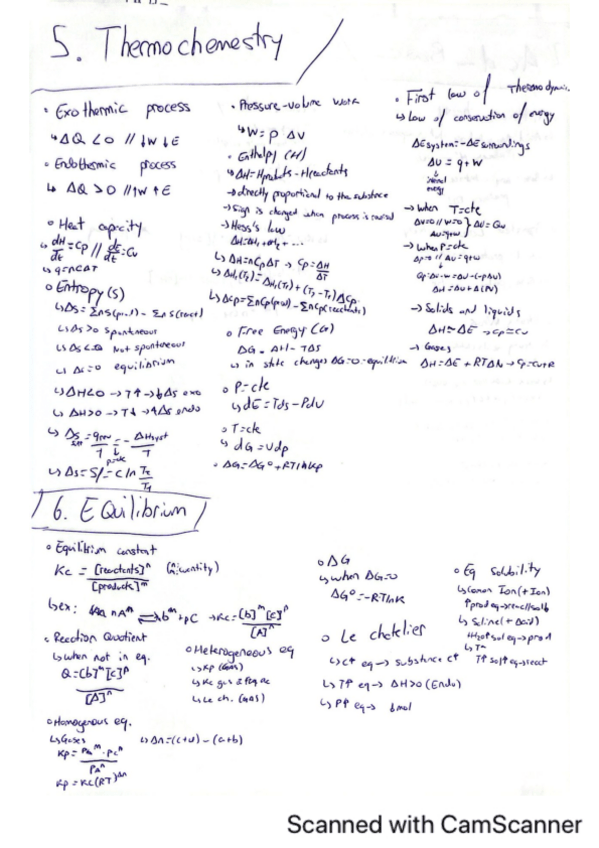 5. Thermochemestry
• Exothermic process
↳ ΔQ < 0 // ↓W ↓E
• Endothermic process
↳ ΔQ > 0 // ↑W ↑E
• Heat capacity
↳ dH/dt = Cp // dE/dt = Cv
↳ q = nCΔT
• Entropy (S)
↳ ΔS = ΣnS(prod) - ΣnS(react)
↳ ΔS > 0 spontaneous
↳ ΔS < 0 Not spontaneous
↳ ΔS = 0 equilibrium
↳ ΔH<0 → T↑ → ↓ΔS exo
↳ ΔH>0 → T↓ → ↑ΔS endo
↳ ΔS = qrev/T = -ΔHsyst/T
↳ ΔS = S/ = C ln T2/T1
• Pressure-volume work
↳ W = P ΔV
• Enthalpy (H)
↳ ΔH = Hproducts - Hreactants
→ directly proportional to the substance
→ Sign is changed when process is
→ Hess's law
ΔH = ΔH1 + ΔH2 + ...
↳ ΔH = nCpΔT → Cp = ΔH/ΔT
↳ ΔH2(T2) = ΔH1(T1) + (T2 - T1)ΔCp
↳ ΔCp = ΣnCp(prod) - ΣnCp(reactants)
• Free Energy (G)
ΔG = ΔH - TΔS
↳ in state changes ΔG=0 → equilibrium
• P=cte
↳ dE = Tds - Pdv
• T=cte
↳ dG = Vdp
• ΔG = ΔG° + RTlnKp
• First law of Thermodynamic
↳ Law of conservation of energy
ΔEsystem = -ΔEsurroundings
ΔU = q + W
↓
internal
energy
→ when T=cte
→ when P=cte
ΔH = ΔU + Δ(PV)
→ Solids and liquids
ΔH ≈ ΔE → Cp = Cv
→ Gases
ΔH = ΔE + RTΔN → Cp = Cv+R
6. EQuilibrium
• Equilibrium constant
Kc = [reactants]ⁿ/[products]ᵐ
↳ ex:
• Reaction Quotient
↳ When not in eq.
Q = [b]ᵐ [c]ᵖ/[A]ⁿ
• Homogenous eq.
↳ Gases ↳ Δn = (c+d) - (a+b)
Kp = Kc(RT)^Δn
• Heterogeneous eq
↳ Kp (gas)
↳ Le ch. (gas)
• ΔG
↳ when ΔG=0
ΔG° = -RTlnK
• Le chatelier
↳ C↑ eq → substance C↑
↳ T↑ eq → ΔH>0 (Endo)
↳ P↑ eq →
• Eq Solubility
Scanned with CamScanner